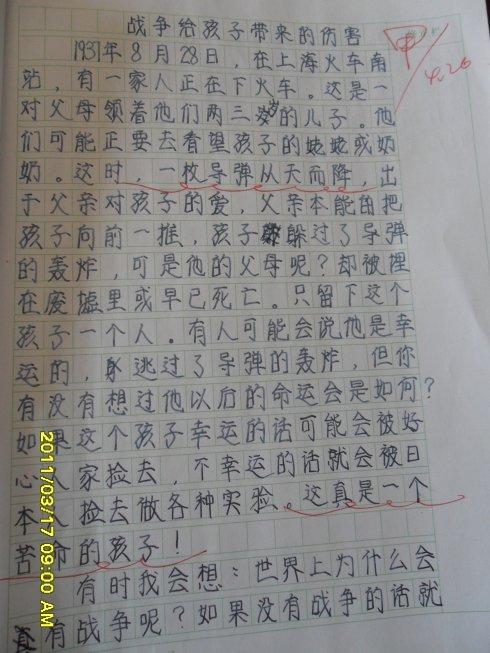 战争给孩子带来的伤害
甲
4.26
1937年8月28日，在上海火车南
站，有一家人正在下火车。这是一
对父母领着他们两三岁的儿子。他
们可能正要去看望孩子的姥姥或奶
奶。这时，一枚导弹从天而降，出
于父亲对孩子的爱，父亲本能的把
孩子向前一推，孩子躲过了导弹
的轰炸，可是他的父母呢？却被埋
在废墟里或早已死亡。只留下这个
孩子一个人。有人可能会说他是幸
运的，躲逃过了导弹的轰炸，但你
有没有想过他以后的命运会是如何？
如果这个孩子幸运的话可能会被好
心人家捡去，不幸运的话就会被日
本人捡去做各种实验。这真是一个
苦命的孩子！
有时我会想：世界上为什么会
有战争呢？如果没有战争的话就
2011/03/17 09:00 AM